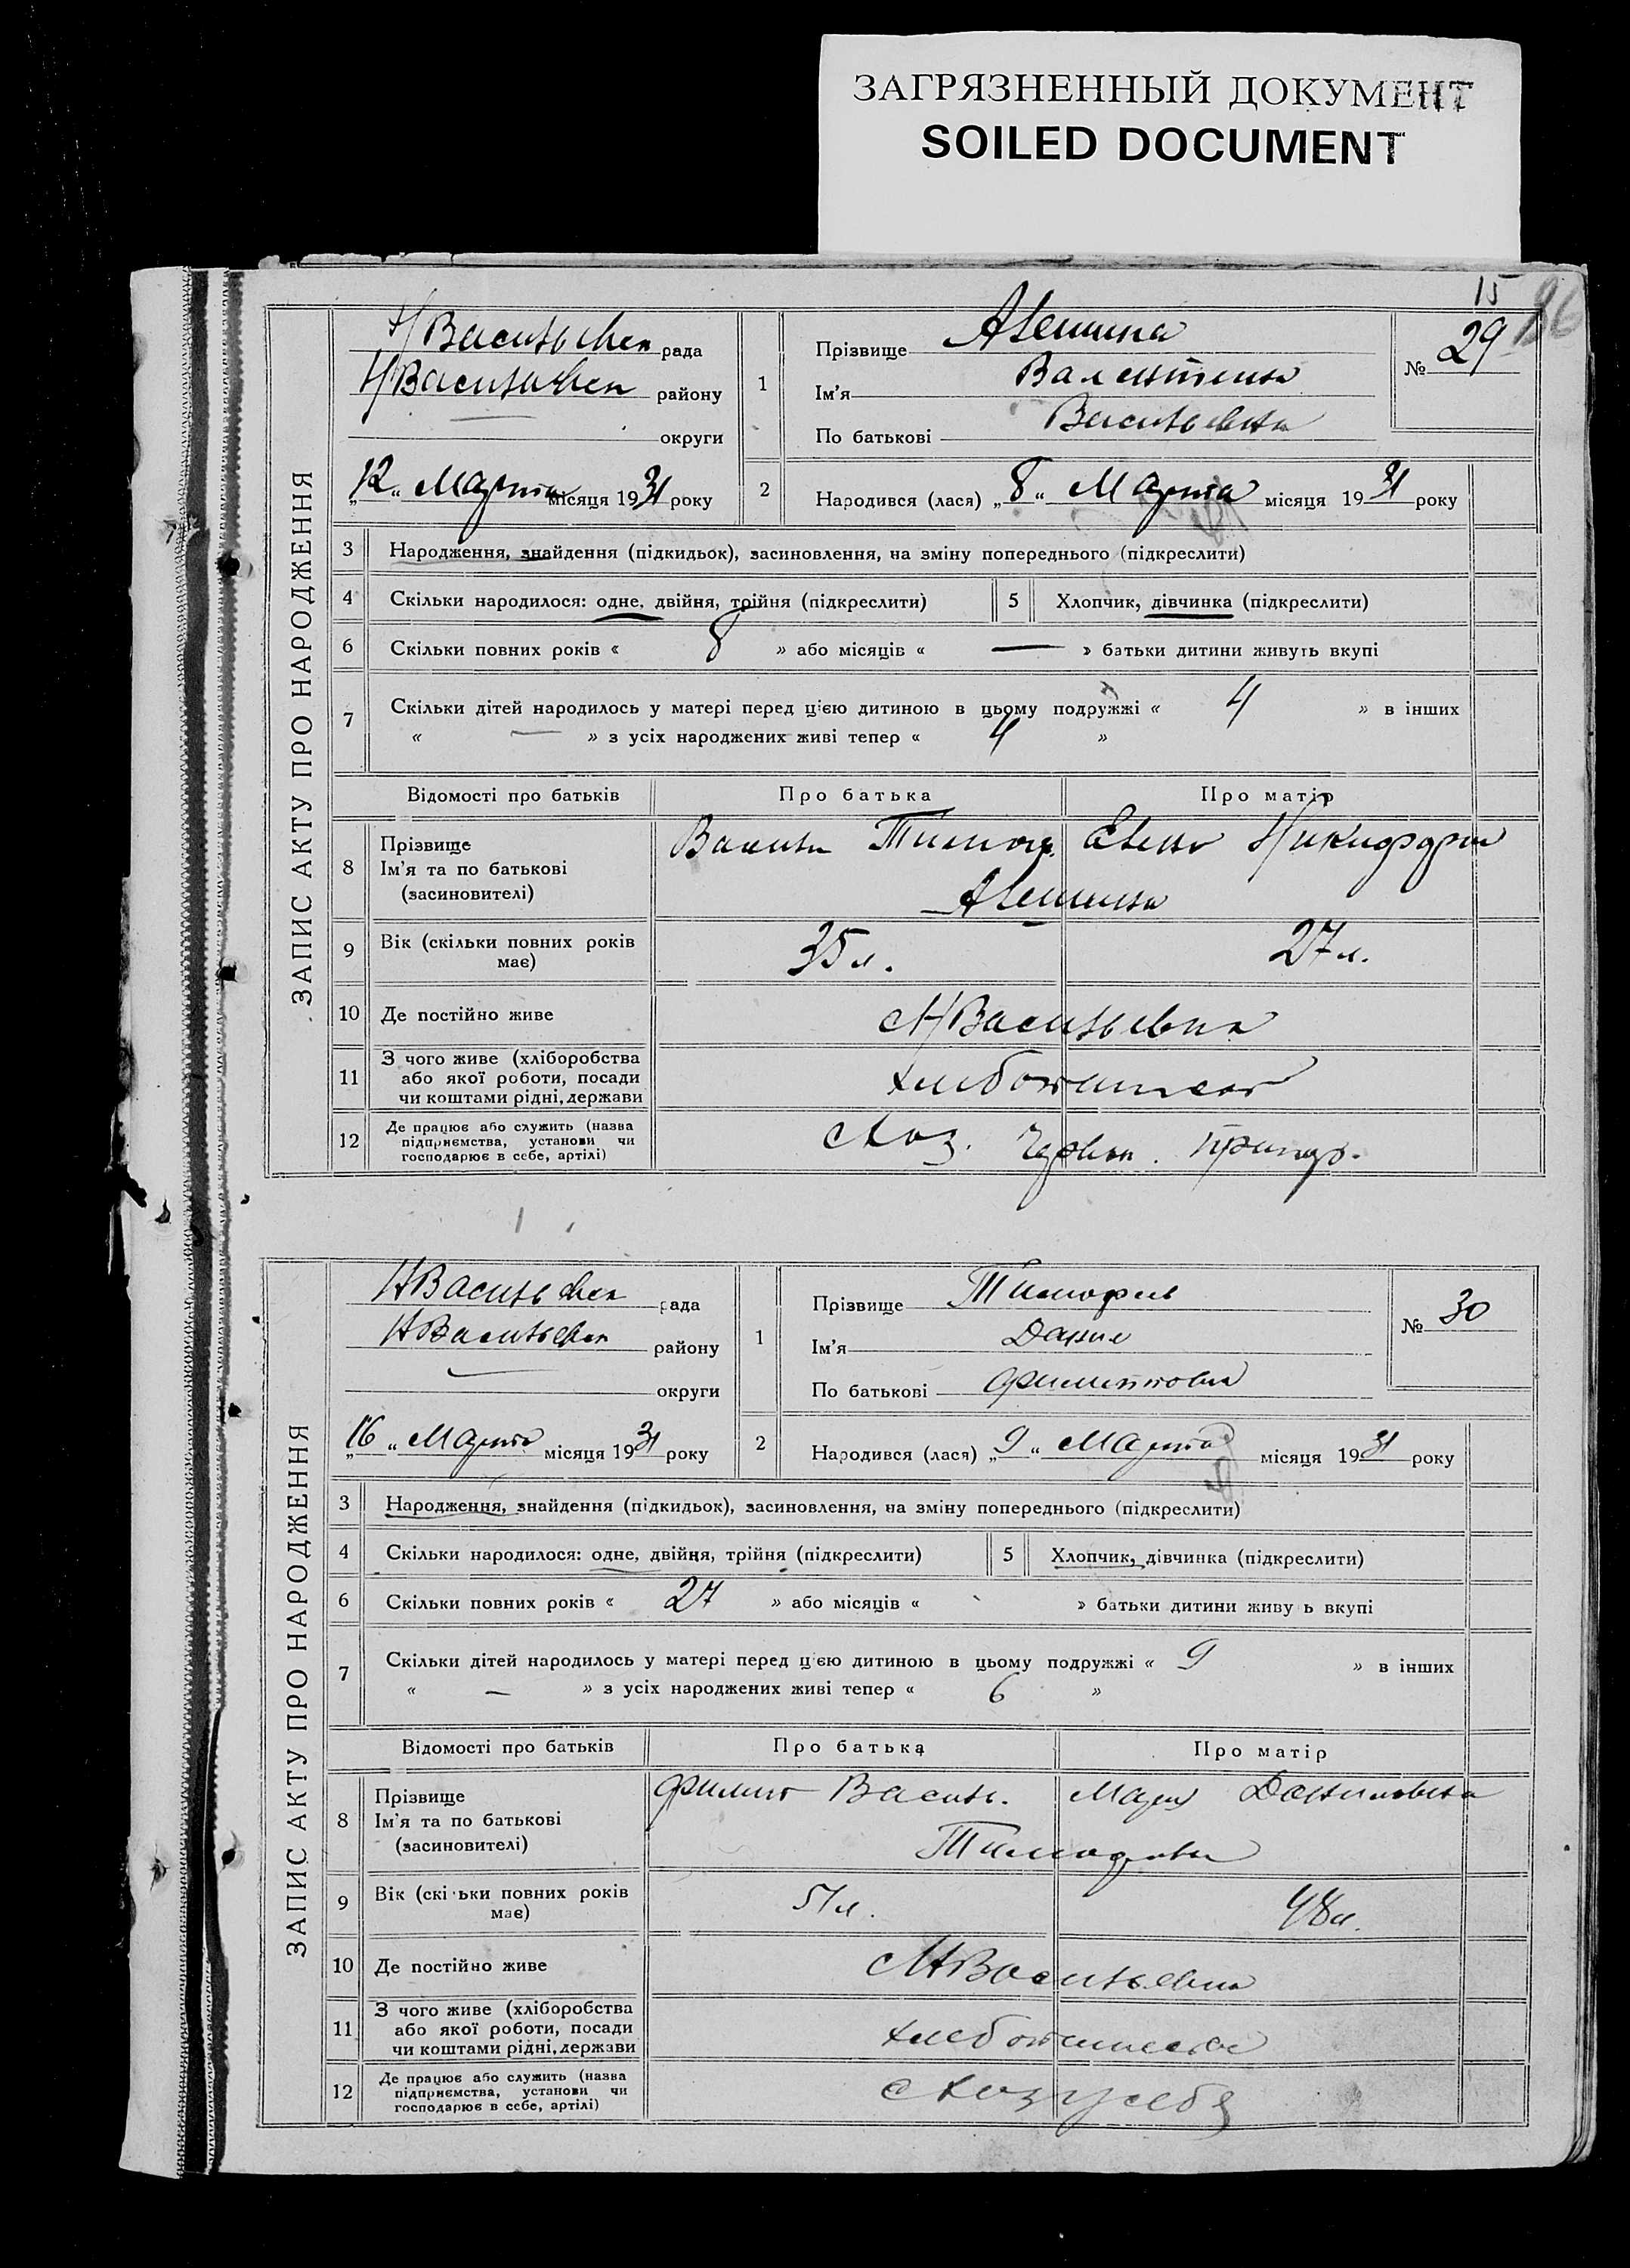 ЗАГРЯЗНЕННЫЙ ДОКУМЕНТ
SOILED DOCUMENT
15
ЗАПИС АКТУ ПРО НАРОДЖЕННЯ
Н/Васильевск рада
Н/Васильевск району
округи
„12“ Марта місяця 1931 року
1
Прізвище Алешина
Ім'я Валентина
По батькові Васильевна
№ 29
2
Народився (лася) „8“ Марта місяця 1931 року
3 Народження, знайдення (підкидьок), засиновлення, на зміну попереднього (підкреслити)
4 Скільки народилося: одне, двійня, трійня (підкреслити)
5 Хлопчик, дівчинка (підкреслити)
6 Скільки повних років « 8 » або місяців « — » батьки дитини живуть вкупі
7 Скільки дітей народилось у матері перед цією дитиною в цьому подружжі « 4 » в інших
« — » з усіх народжених живі тепер « 4 »
Відомості про батьків Про батька Про матір
8 Прізвище
Ім'я та по батькові
(засиновителі)
Васили Тимоф. Елена Никифоров
Алешина
9 Вік (скільки повних років має) 35 л. 27 л.
10 Де постійно живе с Н/Васильевка
11 З чого живе (хліборобства
або якої роботи, посади
чи коштами рідні, держави
12 Де працює або служить (назва
підприємства, установи чи
господарює в себе, артілі)
ЗАПИС АКТУ ПРО НАРОДЖЕННЯ
НВасильевск рада
НВасильевск району
округи
„16“ Марта місяця 1931 року
1
Прізвище Тимофеев
Ім'я
По батькові Филиппович
№ 30
2
Народився (лася) „9“ Марта місяця 1931 року
3 Народження, знайдення (підкидьок), засиновлення, на зміну попереднього (підкреслити)
4 Скільки народилося: одне, двійня, трійня (підкреслити)
5 Хлопчик, дівчинка (підкреслити)
6 Скільки повних років « 27 » або місяців « » батьки дитини живу ь вкупі
7 Скільки дітей народилось у матері перед цією дитиною в цьому подружжі « 9 » в інших
« — » з усіх народжених живі тепер « 6 »
Відомості про батьків Про батька Про матір
8 Прізвище
Ім'я та по батькові
(засиновителі)
Филип Василь. Мария Даниловна
9 Вік (скі ьки повних років має) 51 л. 48 л.
10 Де постійно живе с НВасильевка
11 З чого живе (хліборобства
або якої роботи, посади
чи коштами рідні, держави
12 Де працює або служить (назва
підприємства, установи чи
господарює в себе, артілі)